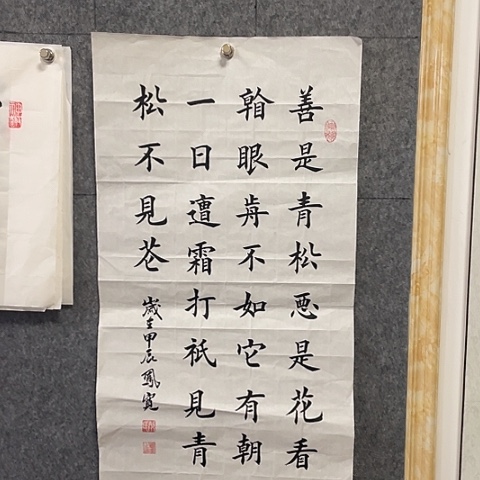 善是青松惡是花看
翰眼歬不如它有朝
一日遭霜打祇見青
松不見苍
歲在甲辰鳳寬